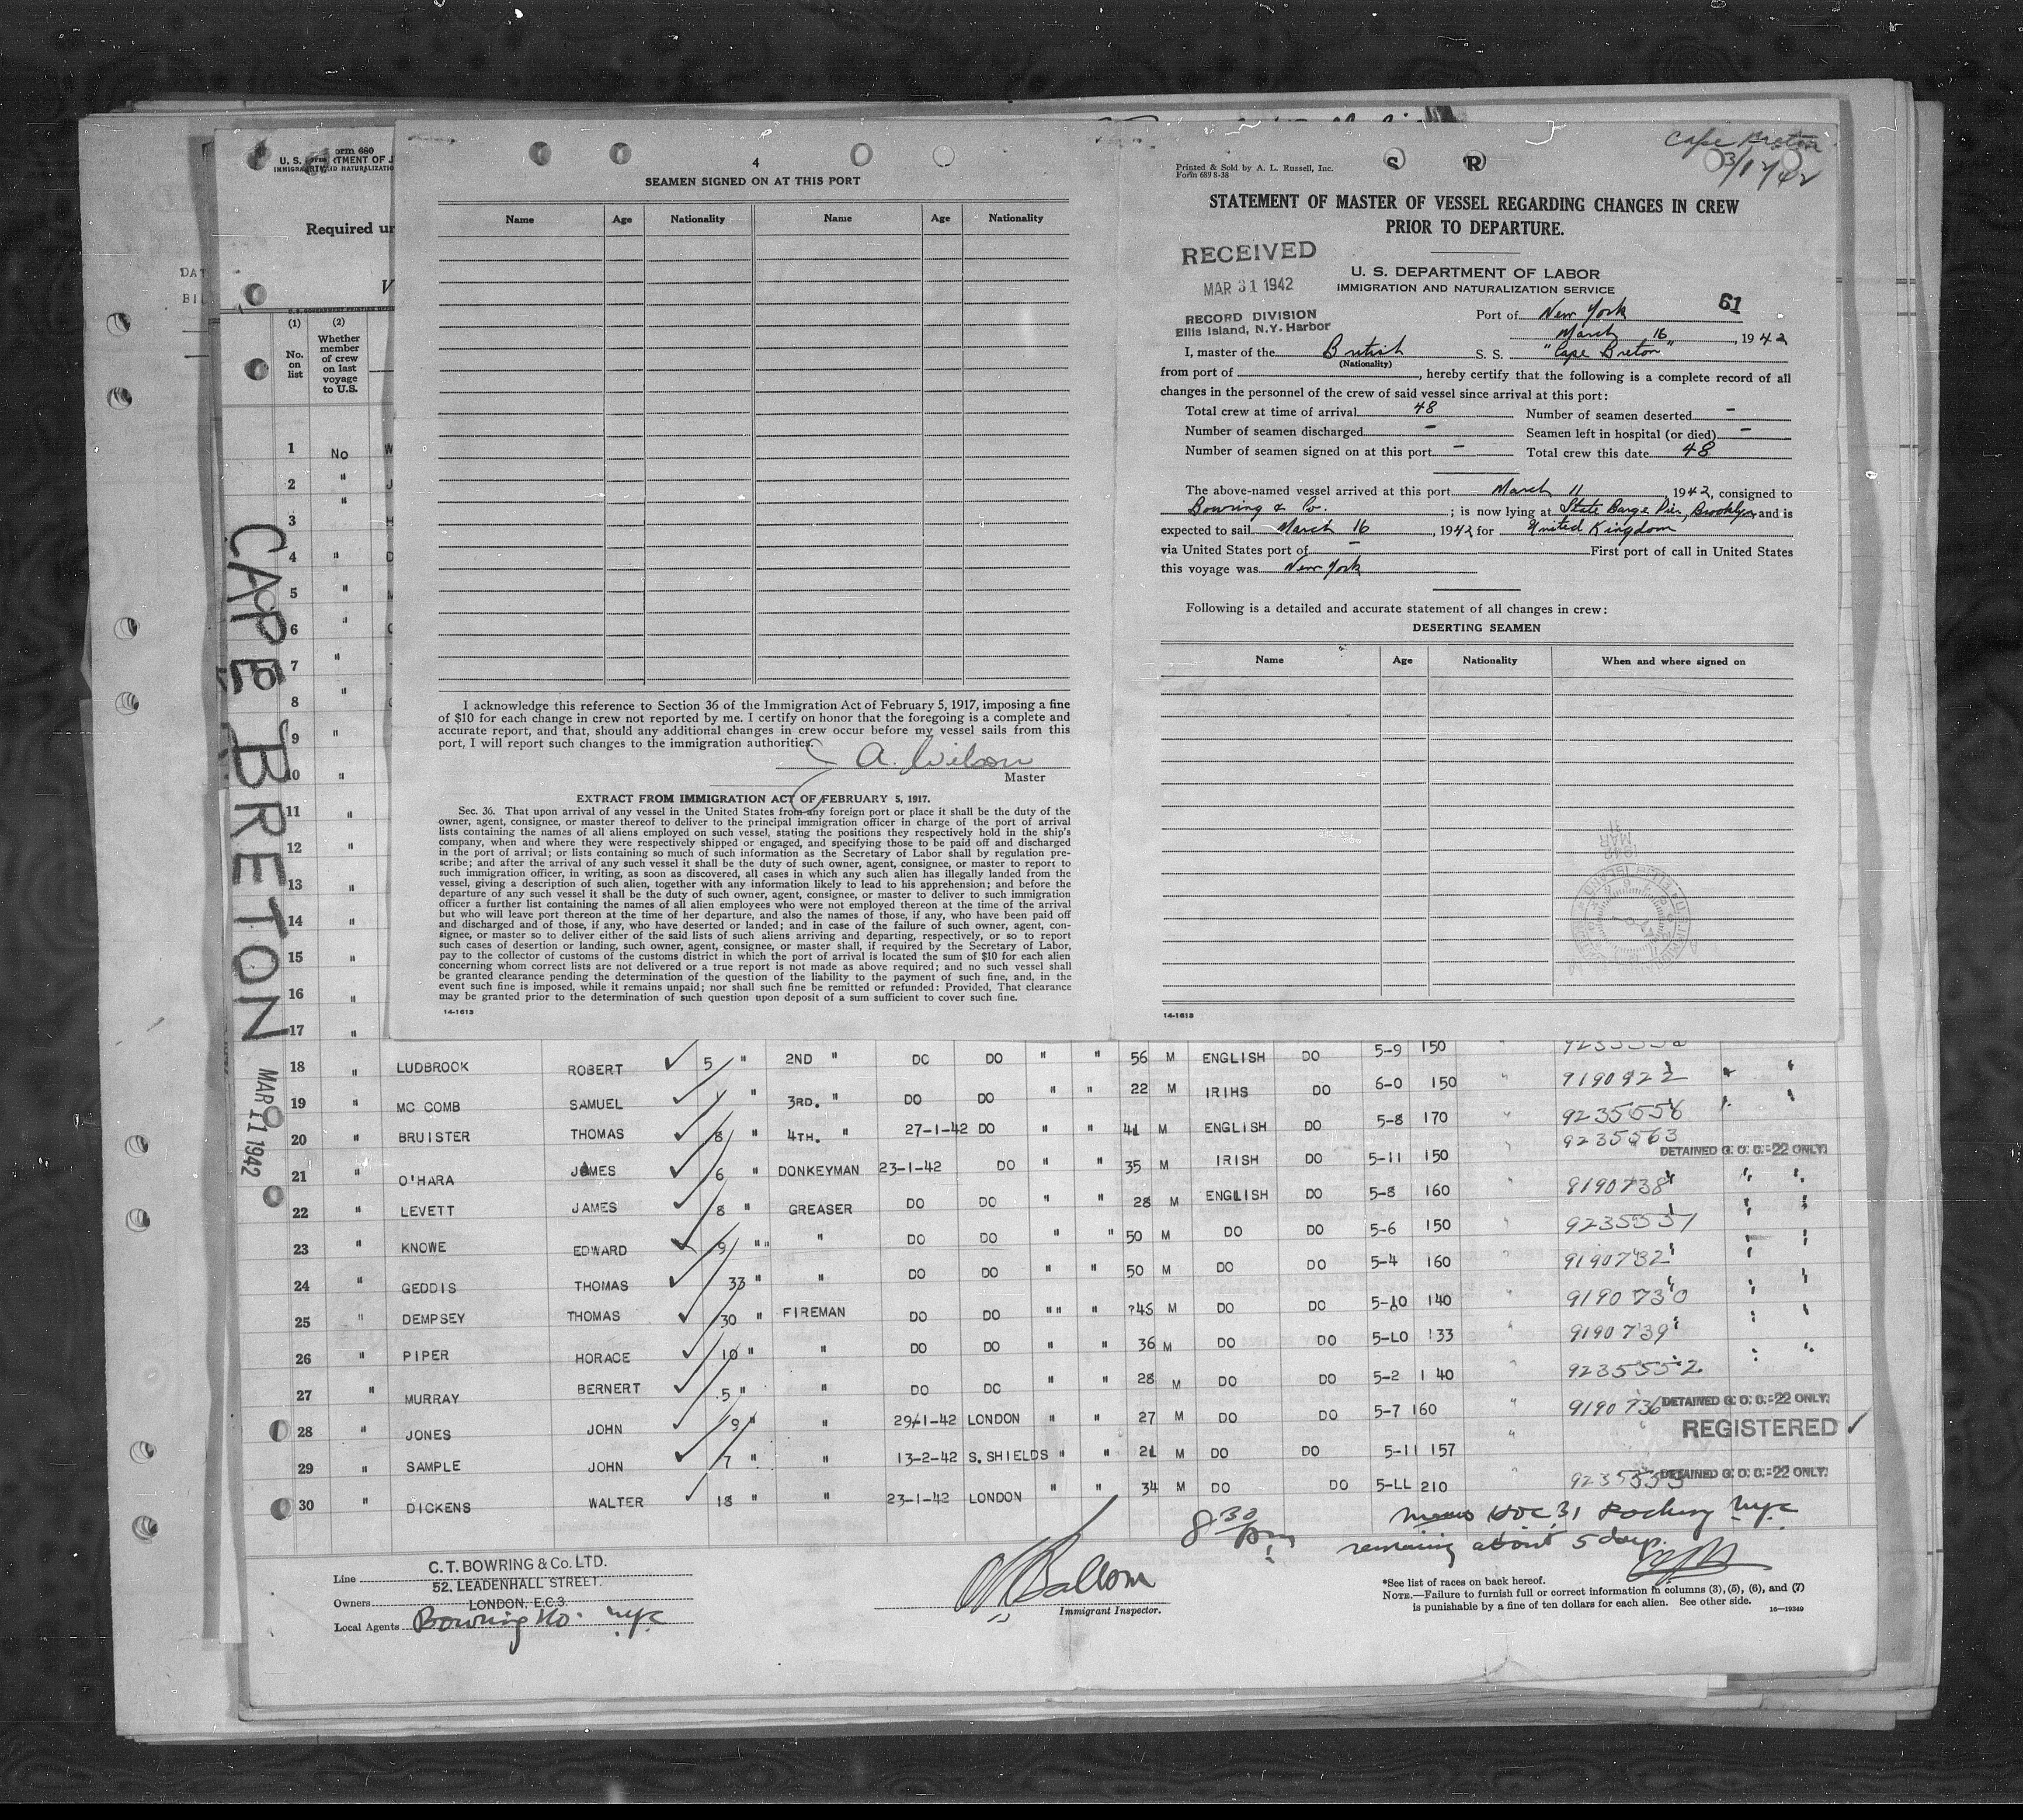 Form 680
U. S. DEPARTMENT OF J
IMMIGRATION AND NATURALIZATIO
Required un
V
(1) (2)
No. on list
Whether member of crew on last voyage to U.S.
CAPE BRETON
MAR 11 1942
4
SEAMEN SIGNED ON AT THIS PORT
Name Age Nationality Name Age Nationality
I acknowledge this reference to Section 36 of the Immigration Act of February 5, 1917, imposing a fine
of $10 for each change in crew not reported by me. I certify on honor that the foregoing is a complete and
accurate report, and that, should any additional changes in crew occur before my vessel sails from this
port, I will report such changes to the immigration authorities.
A. Wilson
Master
EXTRACT FROM IMMIGRATION ACT OF FEBRUARY 5, 1917.
Sec. 36. That upon arrival of any vessel in the United States from any foreign port or place it shall be the duty of the
owner, agent, consignee, or master thereof to deliver to the principal immigration officer in charge of the port of arrival
lists containing the names of all aliens employed on such vessel, stating the positions they respectively hold in the ship's
company, when and where they were respectively shipped or engaged, and specifying those to be paid off and discharged
in the port of arrival; or lists containing so much of such information as the Secretary of Labor shall by regulation pre-
scribe; and after the arrival of any such vessel it shall be the duty of such owner, agent, consignee, or master to report to
such immigration officer, in writing, as soon as discovered, all cases in which any such alien has illegally landed from the
vessel, giving a description of such alien, together with any information likely to lead to his apprehension; and before the
departure of any such vessel it shall be the duty of such owner, agent, consignee, or master to deliver to such immigration
officer a further list containing the names of all alien employees who were not employed thereon at the time of the arrival
but who will leave port thereon at the time of her departure, and also the names of those, if any, who have been paid off
and discharged and of those, if any, who have deserted or landed; and in case of the failure of such owner, agent, con-
signee, or master so to deliver either of the said lists of such aliens arriving and departing, respectively, or so to report
such cases of desertion or landing, such owner, agent, consignee, or master shall, if required by the Secretary of Labor,
pay to the collector of customs of the customs district in which the port of arrival is located the sum of $10 for each alien
concerning whom correct lists are not delivered or a true report is not made as above required; and no such vessel shall
be granted clearance pending the determination of the question of the liability to the payment of such fine, and, in the
event such fine is imposed, while it remains unpaid; nor shall such fine be remitted or refunded: Provided, That clearance
may be granted prior to the determination of such question upon deposit of a sum sufficient to cover such fine.
14-1613
Cape Breton
3/17/42
Printed & Sold by A. L. Russell, Inc.
Form 689 8-38
S R
STATEMENT OF MASTER OF VESSEL REGARDING CHANGES IN CREW
PRIOR TO DEPARTURE.
RECEIVED
MAR 31 1942
RECORD DIVISION
Ellis Island, N.Y. Harbor
U. S. DEPARTMENT OF LABOR
IMMIGRATION AND NATURALIZATION SERVICE
61
Port of New York
March 16, 1942
I, master of the British S. S. "Cape Breton"
(Nationality)
from port of , hereby certify that the following is a complete record of all
changes in the personnel of the crew of said vessel since arrival at this port:
Total crew at time of arrival 48 Number of seamen deserted -
Number of seamen discharged - Seamen left in hospital (or died) -
Number of seamen signed on at this port - Total crew this date 48
The above-named vessel arrived at this port March 11, 1942, consigned to
Bowring & Co. ; is now lying at State Barge Pier, Brooklyn and is
expected to sail March 16, 1942 for United Kingdom
via United States port of - First port of call in United States
this voyage was New York
Following is a detailed and accurate statement of all changes in crew:
DESERTING SEAMEN
Name Age Nationality When and where signed on
14-1613
1 No W
2 " J
3 " H
4 " D
5 " M
6 " C
7 "
8 "
9 "
10 "
11 "
12 "
13 "
14 "
15 "
16 "
17 "
18 " LUDBROOK ROBERT 5 " 2ND " DO DO " " 56 M ENGLISH DO 5-9 150
19 " MC COMB SAMUEL 1 " 3RD. " DO DO " " 22 M IRIHS DO 6-0 150 " 9190922 " "
20 " BRUISTER THOMAS 8 " 4TH. " 27-1-42 DO " " 41 M ENGLISH DO 5-8 170 " 9235556 " "
21 " O'HARA JAMES 6 " DONKEYMAN 23-1-42 DO " " 35 M IRISH DO 5-11 150 9235563 DETAINED G. O. C.-22 ONLY.
22 " LEVETT JAMES 8 " GREASER DO DO " " 28 M ENGLISH DO 5-8 160 " 8190738 " "
23 " KNOWE EDWARD 9 " " " DO DO " " 50 M DO DO 5-6 150 " 9235557 " "
24 " GEDDIS THOMAS 33 " " DO DO " " 50 M DO DO 5-4 160 " 9190732 " "
25 " DEMPSEY THOMAS 30 " FIREMAN DO DO " " " ?45 M DO DO 5-10 140 " 9190730 " "
26 " PIPER HORACE 10 " " DO DO " " 36 M DO DO 5-L0 133 " 9190739 " "
27 " MURRAY BERNERT 5 " " DO DO " " 28 M DO DO 5-2 140 " 9235552 " "
28 " JONES JOHN 9 " " 29-1-42 LONDON " " 27 M DO DO 5-7 160 " 9190736 DETAINED G. O. C.-22 ONLY.
29 " SAMPLE JOHN 7 " " 13-2-42 S. SHIELDS " " 21 M DO DO 5-11 157 " REGISTERED
30 " DICKENS WALTER 18 " " 23-1-42 LONDON " " 34 M DO DO 5-LL 210 " DETAINED G. O. C.-22 ONLY.
8 30 pm
remaining about 5 days.
Line C. T. BOWRING & Co. LTD.
Owners 52, LEADENHALL STREET.
LONDON, E.C.3.
Local Agents Bowring & Co. nyc
Immigrant Inspector.
*See list of races on back hereof.
NOTE.—Failure to furnish full or correct information in columns (3), (5), (6), and (7)
is punishable by a fine of ten dollars for each alien. See other side.
16—19349